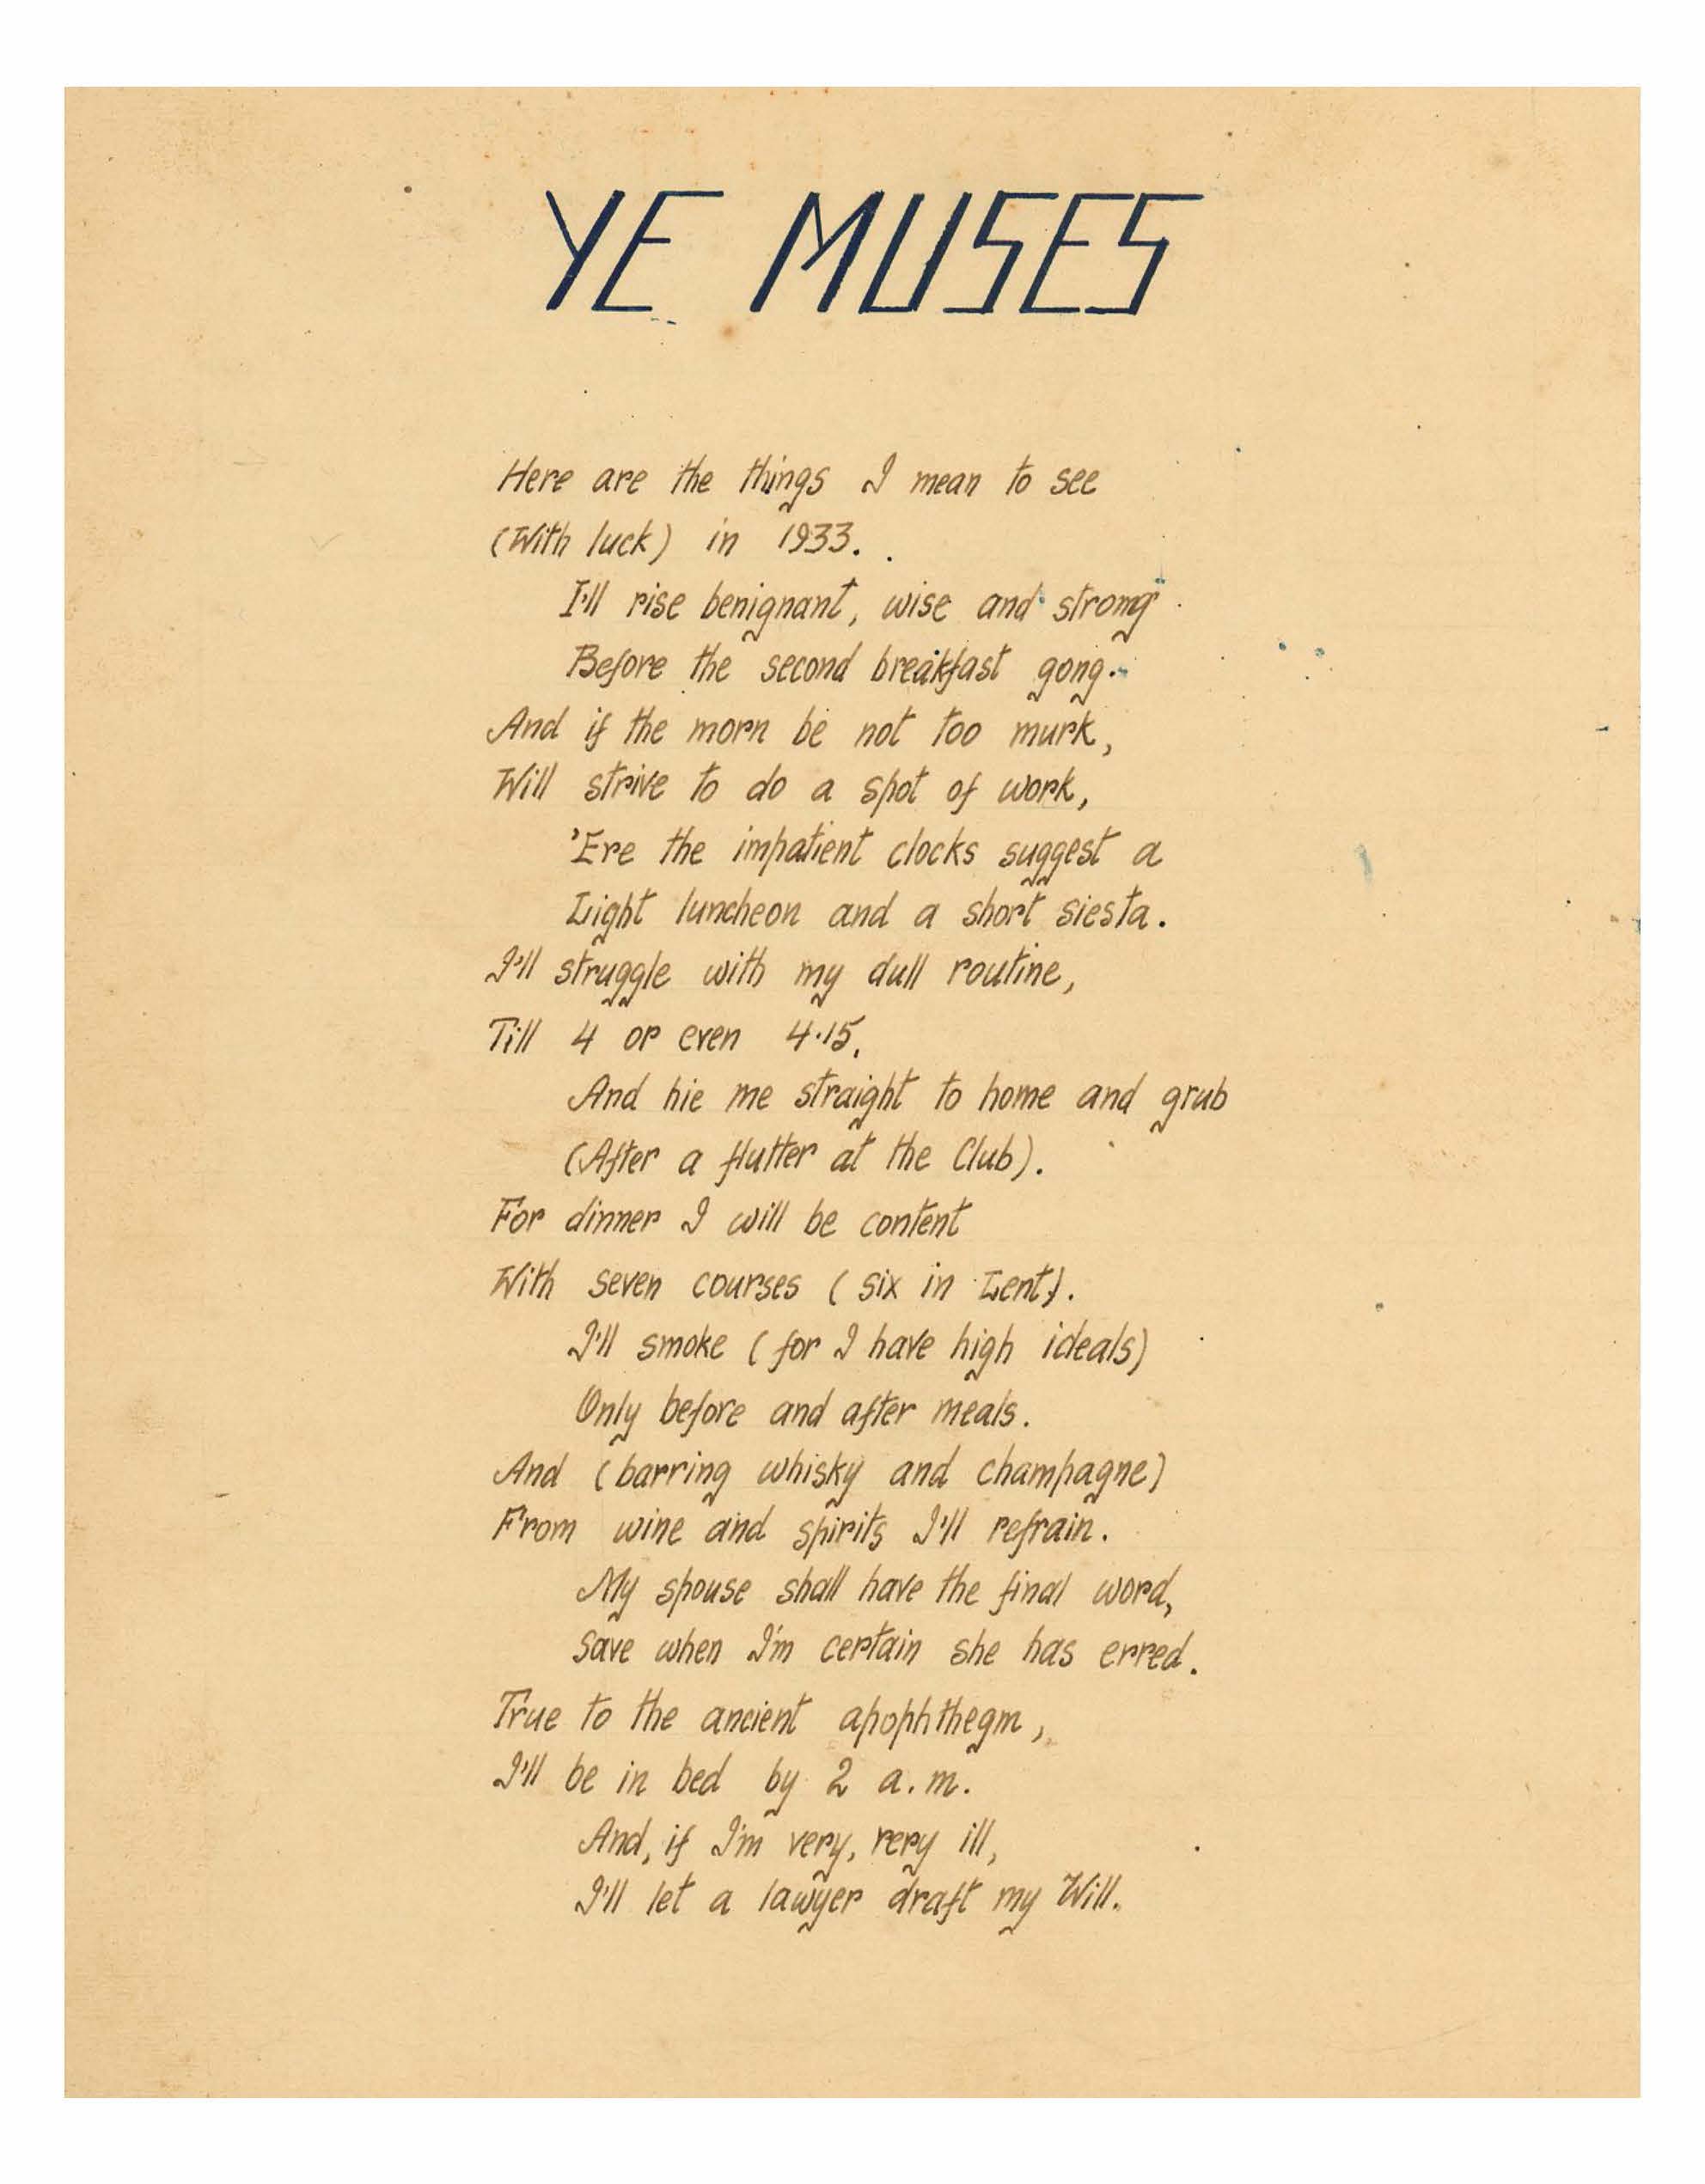 YE MUSES
Here are the things I mean to see
(With luck) in 1933.
I'll rise benignant, wise and strong
Before the second breakfast gong.
And if the morn be not too murk,
Will strive to do a spot of work,
'Ere the impatient clocks suggest a
Light luncheon and a short siesta.
I'll struggle with my dull routine,
Till 4 or even 4.15,
And hie me straight to home and grub
(After a flutter at the Club).
For dinner I will be content
With seven courses (six in Lent).
I'll smoke (for I have high ideals)
Only before and after meals.
And (barring whisky and champagne)
From wine and spirits I'll refrain.
My spouse shall have the final word,
Save when I'm certain she has erred.
True to the ancient apophthegm,
I'll be in bed by 2 a.m.
And, if I'm very, very ill,
I'll let a lawyer draft my Will.